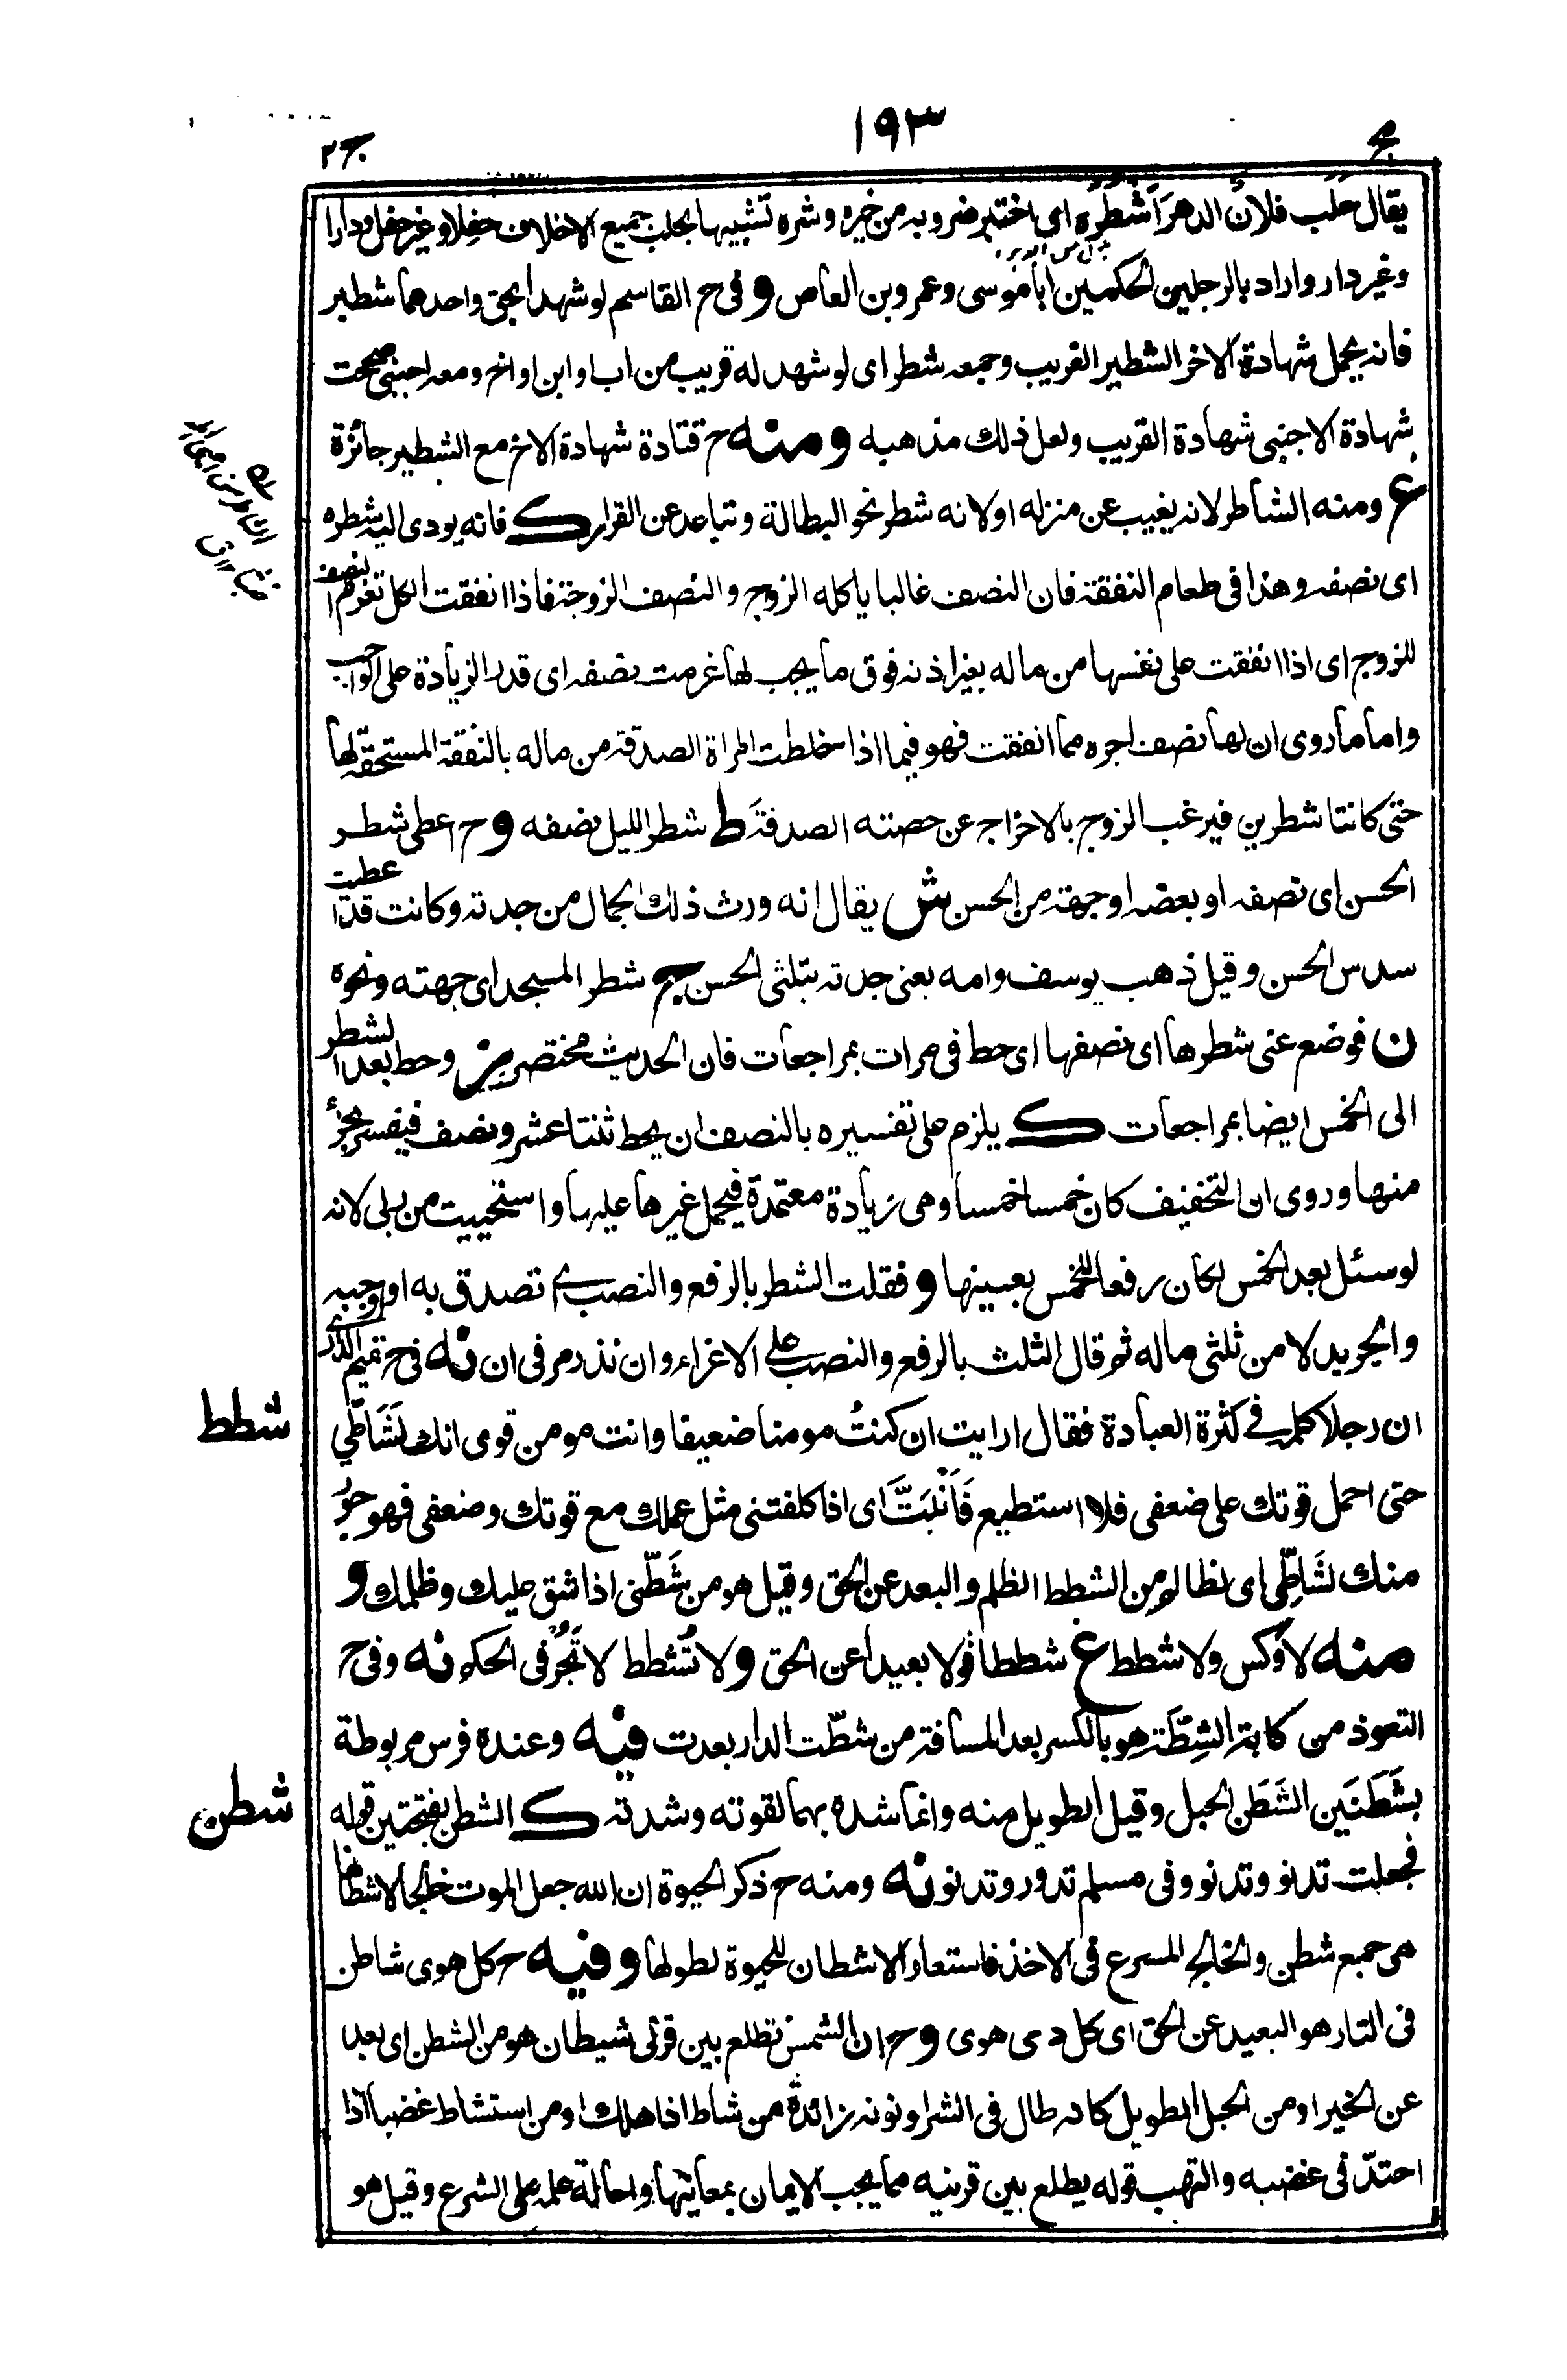 ١٩٣
ج ٢
يقال حلب فلانٌ الدهرَ اَشطُرَه اى اختبر ضروبه من خيره وشره تشبيها بحلب جميع الاخلاف حفلا وغير حفل ودارا
وغير دار واراد بالرجلين الحكمين ابا موسى وعمرو بن العاص و فى ح القاسم لو شهدا بحق واحدهما شطير
فانه يحمل شهادة الاخر الشطير القريب وجمعه شطر اى لو شهد له قريب من اب او ابن او اخ ومعه اجنبى صحت
شهادة الاجنبى شهادة القريب ولعل ذلك مذهبه ومنه ح قتادة شهادة الاخ مع الشطير جائزة
غ ومنه الشاطر لانه يغيب عن منزله او لانه شطر نحو البطالة وتباعد عن القرار ك فانه يودى اليه شطره
اى نصفه وهذا فى طعام النفقة فان النصف غالبا ياكله الزوج والنصف الزوجة فاذا انفقت الكل تغرم النصف
للزوج اى اذا انفقت على نفسها من ماله بغير اذنه فوق ما يجب لها غرمت نصفه اى قدر الزيادة على الواجب
واما ما روى ان لها نصف اجره مما انفقت فهو فيما اذا خلطت المراة الصدقة من ماله بالنفقة المستحقة لها
حتى كانتا شطرين فيرغب الزوج بالاخراج عن حصته الصدقة ط شطر الليل نصفه وح اعطى شطر
الحسن اى نصفه او بعضه او جهة من الحسن ش يقال انه ورث ذلك الجمال من جدته وكانت قد اعطيت
سدس الحسن وقيل ذهب يوسف وامه يعنى جدته بثلثى الحسن ج شطر المسجد اى جهته ونحوه
ن فوضع عنى شطرها اى نصفها اى حط فى مرات بمراجعات فان الحديث مختصر وحط بعد الشطر
الى الخمس ايضا بمراجعات ك يلزم على تفسيره بالنصف ان يحط ثنتا عشر ونصف فيفسر بجزء
منها وروى ان التخفيف كان خمسا خمسا وهى زيادة معتمدة فيحمل غيرها عليها واستحييت من ربى لانه
لو سئل بعد الخمس لكان رفعا للخمس بعينها و فقلت الشطر بالرفع والنصب اى اتصدق به او اوجبه
والجر يدلا من ثلثى ماله ثم قال الثلث بالرفع والنصب على الاغراء وان نذر مر فى ان نه فى ح تميم الدارى
شطط
ان رجلا كلمه فى كثرة العبادة فقال ارايت ان كنتُ مومنا ضعيفا وانت مومن قوى انك لَشَاطِّي
حتى احمل قوتك على ضعفى فلا استطيع فَاَنْبَتَّ اى اذا كلفتنى مثل عملك مع قوتك وضعفى فهو جور
منك لشَاطِّى اى لظالم من الشطط الظلم والبعد عن الحق وقيل هو من شَطَّنى اذا شق عليك وظلمك و
منه لا وَكس ولا شطط غ شططا قولا بعيدا عن الحق و لا تُشطط لا تَجُر فى الحكم نه وفى ح
التعوذ من كابة الشِطَّة هو بالكسر بعد المسافة من شطّت الدار بعدت فيه وعنده فرس مربوطة
شطن
بشَطَنَين الشَطَن الحبل وقيل الطويل منه وانما شده بهما لقوته وشدته ك الشطن بفتحتين قوله
فجعلت تدنو وتدنو وفى مسلم تدور وتدنو نه ومنه ح ذكر الحيوة ان الله جعل الموت خالجا لاشطانها
هى جمع شطن والخالج المسرع فى الاخذ فاستعار الاشطان للحيوة لطولها وفيه ح كل هوى شاطن
فى النار هو البعيد عن الحق اى كل ذى هوى وح ان الشمس تطلع بين قرنى شيطان هو من الشطن اى بعد
عن الخير او من الحبل الطويل كانه طال فى الشر او نونه زائدة من شاط اذا هلك او من استشاط غضبا اذا
احتدّ فى غضبه والتهب قوله يطلع بين قرنيه مما يجب الايمان بمعانيها واحالة علمه على الشرع وقيل هو